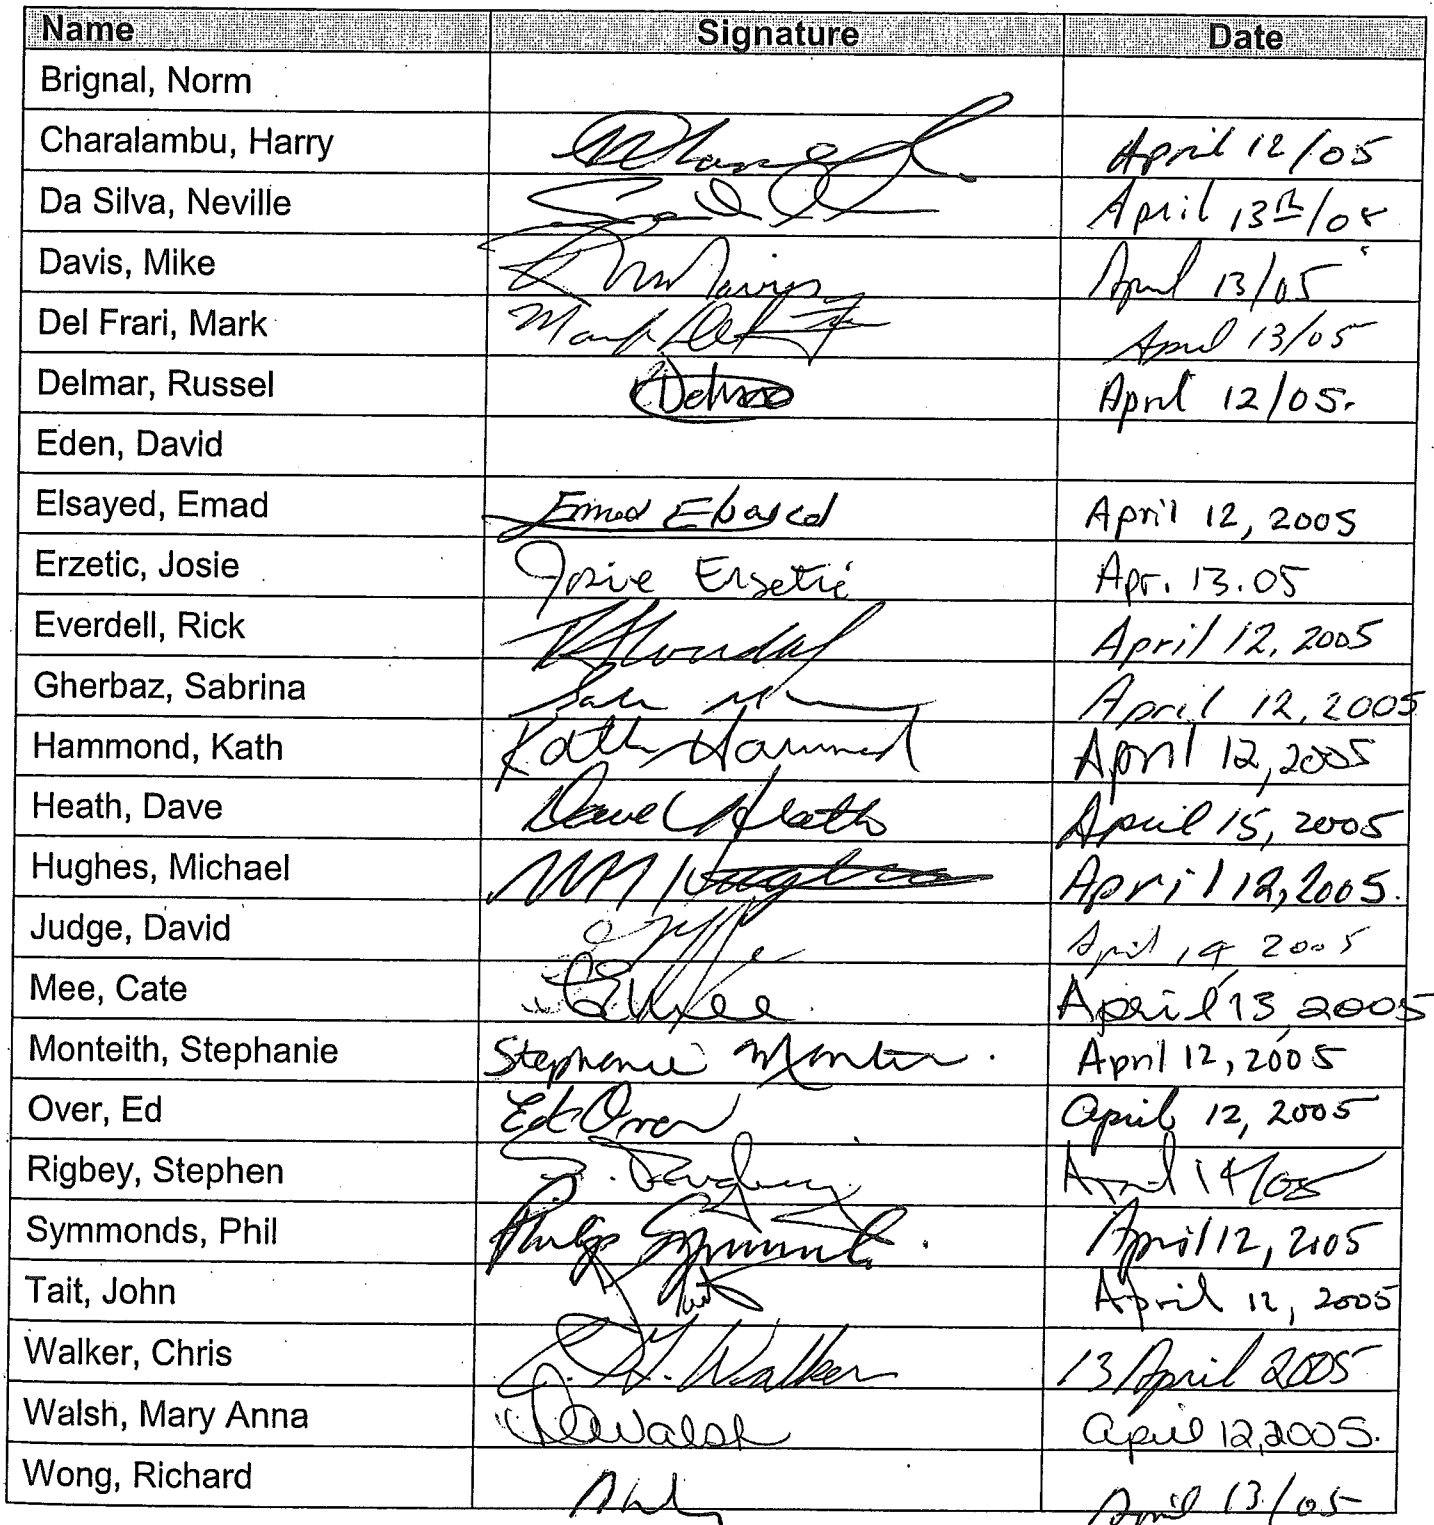 Name Signature Date
Brignal, Norm
Charalambu, Harry April 12/05
Da Silva, Neville April 13th/05
Davis, Mike April 13/05
Del Frari, Mark April 13/05
Delmar, Russel April 12/05.
Eden, David
Elsayed, Emad Emad Elsayed April 12, 2005
Erzetic, Josie Josie Erzetic Apr. 13.05
Everdell, Rick April 12, 2005
Gherbaz, Sabrina April 12, 2005
Hammond, Kath Kath Hammond April 12, 2005
Heath, Dave Dave Heath April 15, 2005
Hughes, Michael April 12, 2005.
Judge, David April 14, 2005
Mee, Cate April 13, 2005
Monteith, Stephanie Stephanie April 12, 2005
Over, Ed Ed Over April 12, 2005
Rigbey, Stephen S. Rigbey April 14/05
Symmonds, Phil Philip Symmonds. April 12, 2005
Tait, John Tait April 12, 2005
Walker, Chris C. H. Walker 13 April 2005
Walsh, Mary Anna Walsh April 12, 2005.
Wong, Richard April 13/05